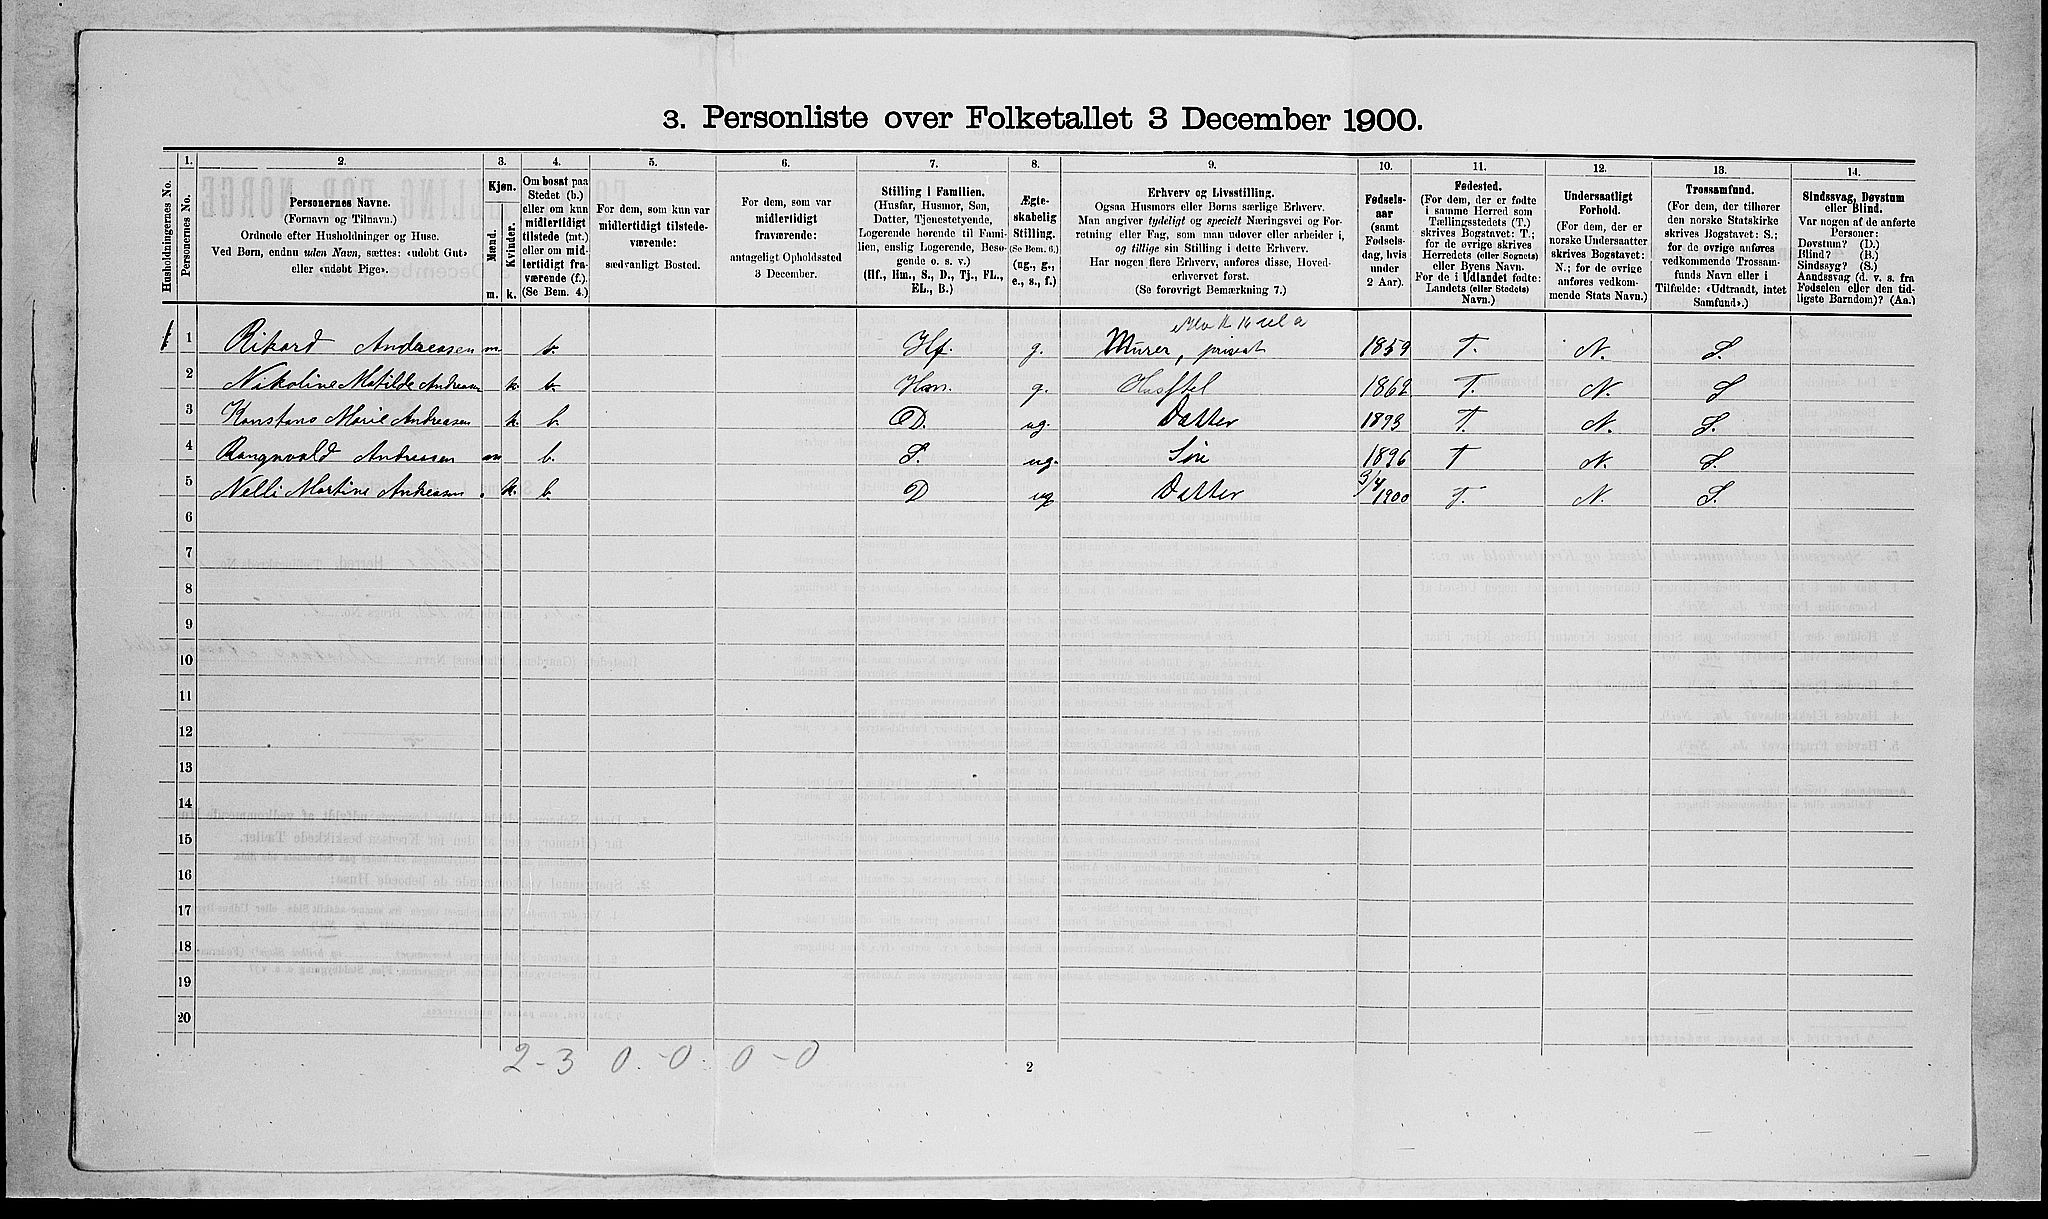 3. Personliste over Folketallet 3 December 1900.
Husholdningernes No.
1. Personernes No.
2. Personernes Navne.
(Fornavn og Tilnavn.)
Ordnede efter Husholdninger og Huse.
Ved Børn, endnu uden Navn, sættes: «udøbt Gut»
eller «udøbt Pige».
3. Kjøn.
Mænd. Kvinder.
m. k.
4. Om bosat paa
Stedet (b.)
eller om kun
midlertidigt
tilstede (mt.)
eller om mid-
lertidigt fra-
værende (f.).
(Se Bem. 4.)
5. For dem, som kun var
midlertidigt tilstede-
værende:
sædvanligt Bosted.
6. For dem, som var
midlertidigt
fraværende:
antageligt Opholdssted
3 December.
7. Stilling i Familien.
(Husfar, Husmor, Søn,
Datter, Tjenestetyende,
Logerende hørende til Fami-
lien, enslig Logerende, Besø-
gende o. s. v.)
(Hf., Hm., S., D., Tj., FL.,
EL., B.)
8. Ægte-
skabelig
Stilling.
(Se Bem. 6.)
(ug., g.,
e., s., f.)
9. Erhverv og Livsstilling.
Ogsaa Husmors eller Børns særlige Erhverv.
Man angiver tydeligt og specielt Næringsvei og For-
retning eller Fag, som man udøver eller arbeider i,
og tillige sin Stilling i dette Erhverv.
Har nogen flere Erhverv, anføres disse, Hoved-
erhvervet først.
(Se forøvrigt Bemærkning 7.)
10. Fødsels-
aar
(samt
Fødsels-
dag, hvis
under
2 Aar).
11. Fødested.
(For dem, der er fødte
i samme Herred som
Tællingsstedets (T.)
skrives Bogstavet: T.;
for de øvrige skrives
Herredets (eller Sognets)
eller Byens Navn.
For de i Udlandet fødte:
Landets (eller Stedets)
Navn.)
12. Undersaatligt
Forhold.
(For dem, der er
norske Undersaatter
skrives Bogstavet:
N.; for de øvrige
anføres vedkom-
mende Stats Navn.)
13. Trossamfund.
(For dem, der tilhører
den norske Statskirke
skrives Bogstavet: S.;
for de øvrige anføres
vedkommende Trossam-
funds Navn eller i
Tilfælde: «Udtraadt, intet
Samfund».)
14. Sindssvag, Døvstum
eller Blind.
Var nogen af de anførte
Personer:
Døvstum? (D.)
Blind? (B.)
Sindssyg? (S.)
Aandssvag (d. v. s. fra
Fødselen eller den tid-
ligste Barndom)? (Aa.)
1 Rikard Andreasen m b. Hf. g. Murer, privat 1859 T. N. S.
2 Nikoline Matilde Andreasen k. b. Hm. g. 1862 T. N. S
3 Konstans Marie Andreasen k. b. D. ug. Datter 1893 T. N. S.
4 Rangnvald Andreasen m b. S. ug. Søn 1896 T N. S.
5 Nelli Martine Andreasen k. b. D ug Datter 3/4 1900 T. N. S.
6
7
8
9
10
11
12
13
14
15
16
17
18
19
20
2-3 0-0 0-0
2